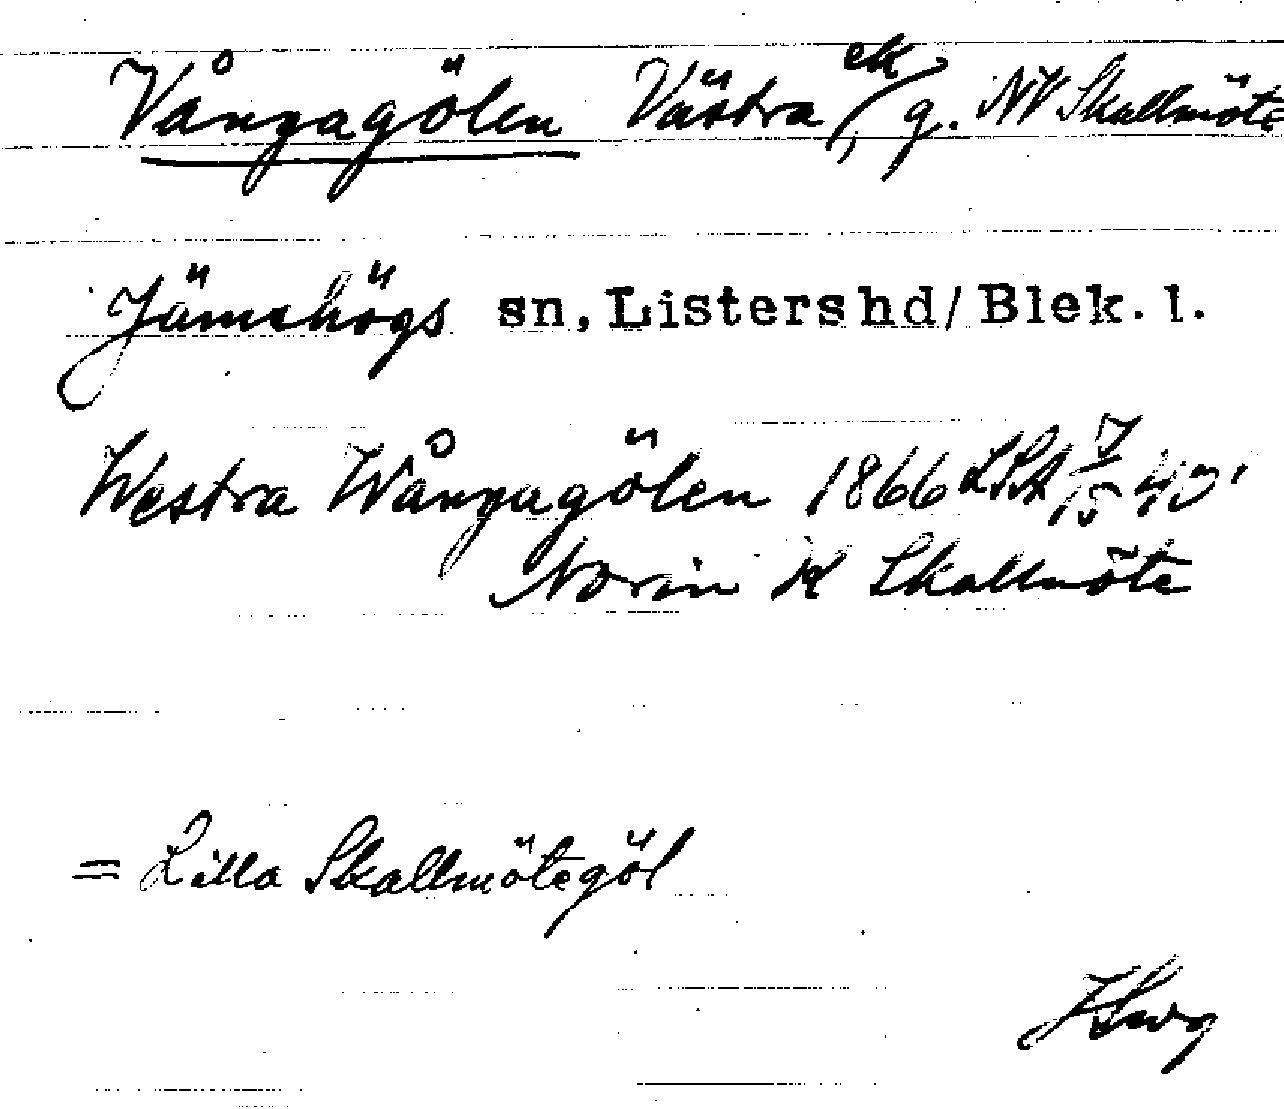 Vångagölen Västra ek, g. NV Skallmöte
Jämshögs sn, Listers hd/Blek. l.
Westra Wångagölen 1866 LSA
Norin K Skallmöte
= Lilla Skallmötegöl